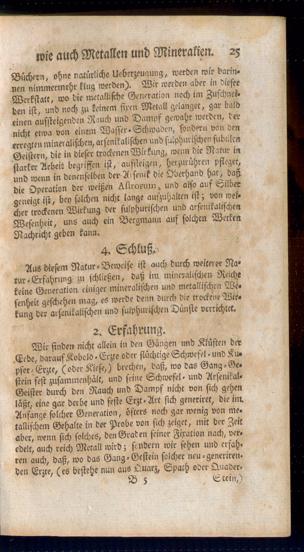 wie auch Metallen und Mineralien. 25
Büchern, ohne natürliche Ueberzeugung, werden wir darin-
nen nimmermehr klug werden). Wir werden aber in dieser
Werkstatt, wo die metallische Generation noch im Zuschnei-
den ist, und noch zu keinem fixen Metall gelanget, gar bald
einen aufsteigenden Rauch und Dampf gewahr werden, der
nicht etwa von einem Wasser-Schwaden, sondern von den
erregten mineralischen, arsenikalischen und sulphurischen subtilen
Geistern, die in dieser trockenen Wirkung, wenn die Natur in
starker Arbeit begriffen ist, aufsteigen, herzurühren pfleget,
und wenn in denenselben der Arsenik die Oberhand hat; daß
die Operation der weißen Astrorum, und also auf Silber
geneigt ist, bey solchen nicht lange aufzuhalten ist; von wel-
cher trockenen Wirkung der sulphurischen und arsenikalischen
Wesenheit, uns auch ein Bergmann auf solchen Werken
Nachricht geben kann.
4. Schluß.
Aus diesem Natur-Beweise ist auch durch weiterer Na-
tur-Erfahrung zu schließen, daß im mineralischen Reiche
keine Generation einiger mineralischen und metallischen We-
senheit geschehen mag, es werde denn durch die trockene Wir-
kung der arsenikalischen und sulphurischen Dünste verrichtet.
2. Erfahrung.
Wir finden nicht allein in den Gängen und Klüften der
Erde, darauf Kobold-Erzte oder flüchtige Schwefel- und Ku-
pfer-Erzte, (oder Kiese,) brechen, daß, wo das Gang-Ge-
stein fest zusammenhält, und seine Schwefel- und Arsenikal-
Geister durch den Rauch und Dampf nicht von sich gehen
läßt, eine gar derbe und feste Erzt-Art sich generiret, die im
Anfange solcher Generation, öfters noch gar wenig von me-
tallischem Gehalte in der Probe von sich zeiget, mit der Zeit
aber, wenn sich solches, den Graden seiner Fixation nach, ver-
edelt, auch reich Metall wird; sondern wir sehen und erfah-
ren auch, daß, wo das Gang-Gestein solcher neu-generiren-
den Erzte, (es bestehe nun aus Quarz, Spath oder Quader-
B 5 Stein,)